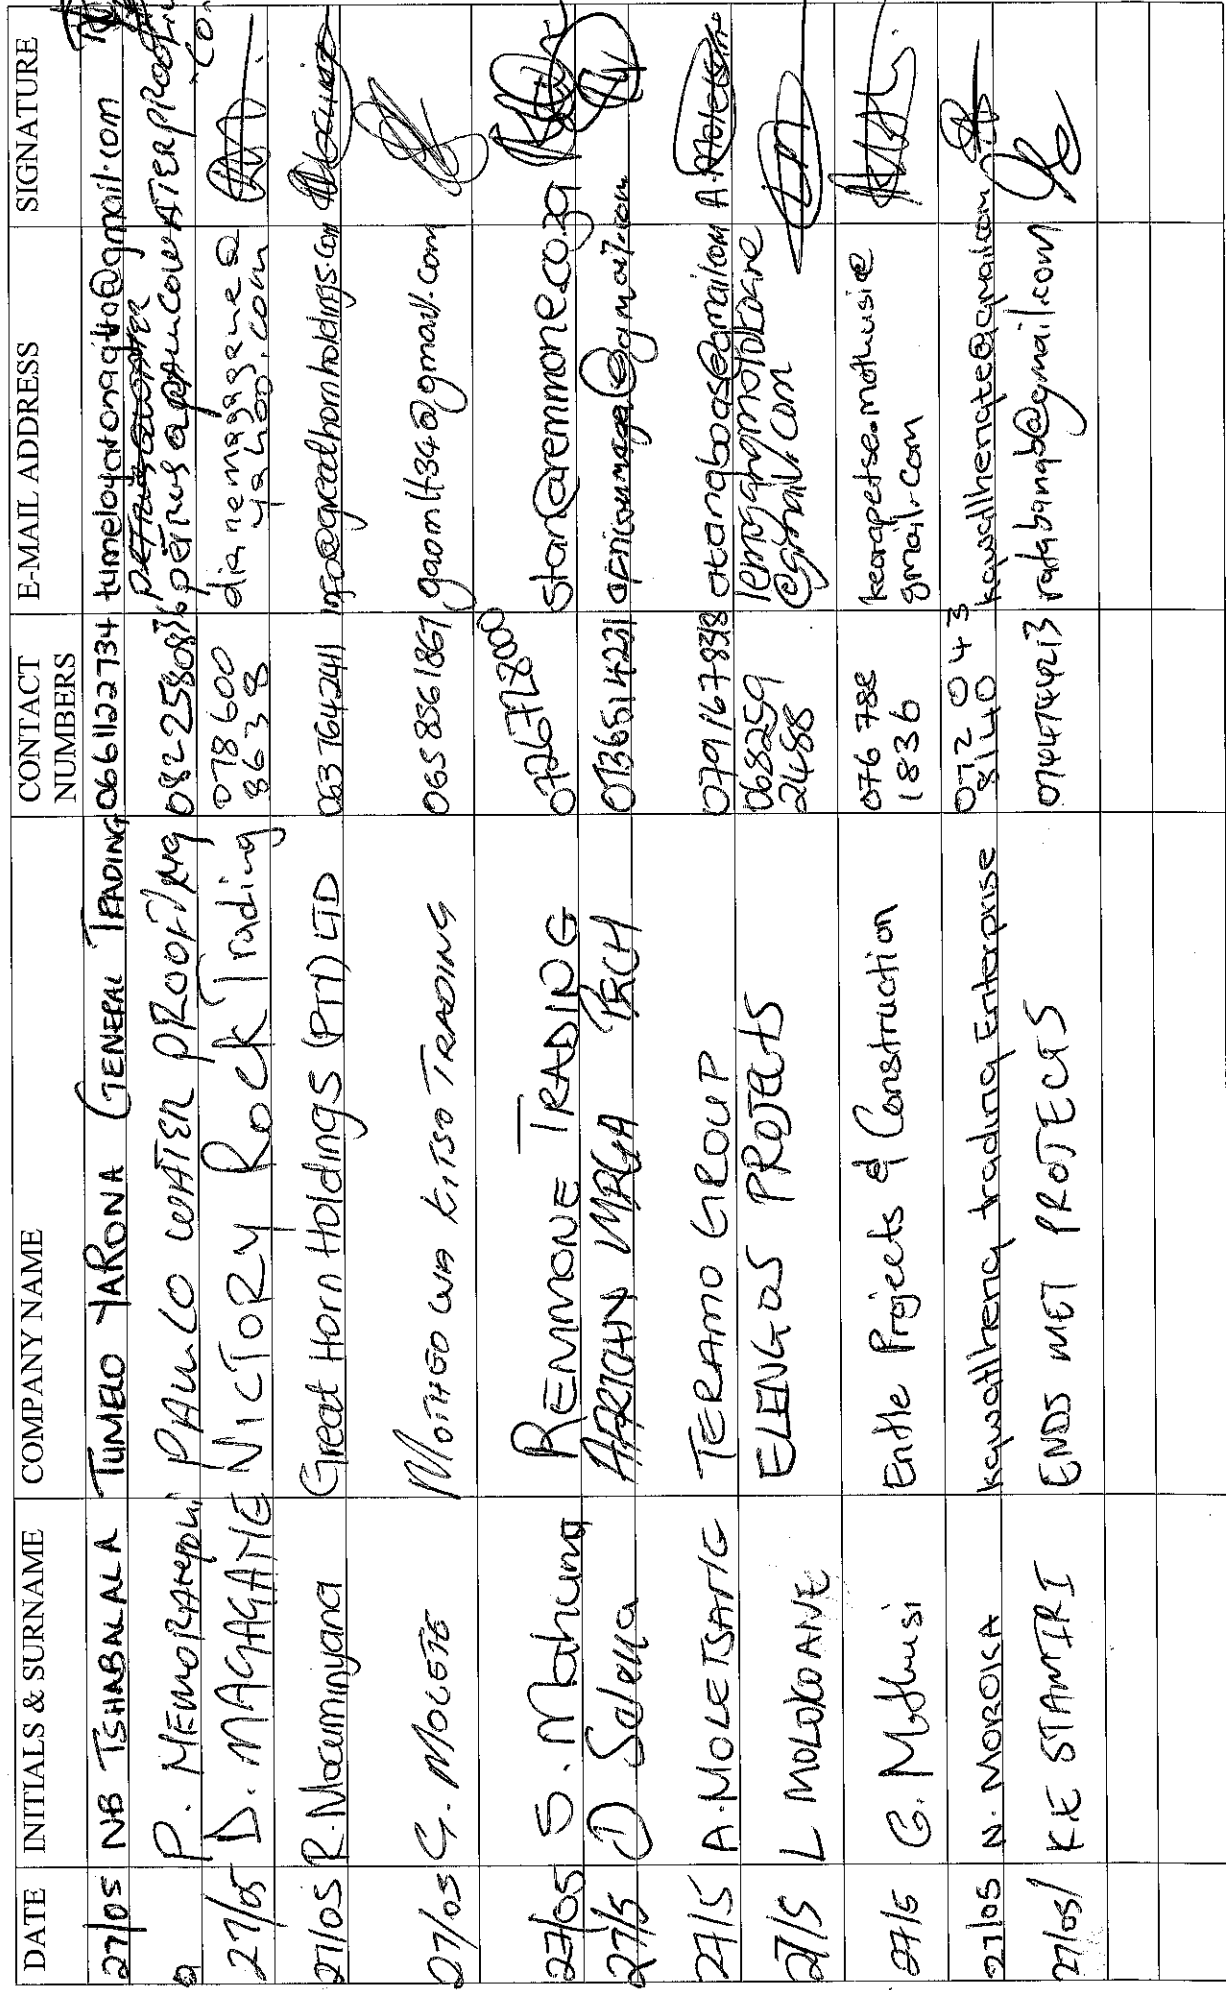 DATE INITIALS & SURNAME COMPANY NAME CONTACT NUMBERS E-MAIL ADDRESS SIGNATURE
27/05 NB TSHABALALA TUMELO YARONA GENERAL TRADING 0661122734 tumeloyaronagto@gmail.com
P. PAWCO WATER PROOFING
27/05 D. MAGAGANE VICTORY Rock Trading 078 600 8638 dianemagagane@
yahoo.com
27/05 R. Macuminyana Great Horn Holdings (PTY) LTD 0637642411 info@greathornholdings.com
27/05 G. MOLETE MOTHEO WA KITSO TRADING 0658561867 gaomlt34@gmail.com
27/05 S. Mahuma REMMONE TRADING 0726772800 stan@remmone.co.za
27/5 D Salema AFRICAN MAGA 0736514221
27/5 A. MOLETSANG TERAMO GROUP 0791167838 atangboas@gmail.com A. Moletsane
27/5 L MOLOKOANE ELENGOS PROJECTS 068259 2488 lemogangmolokoane
@gmail.com
27/5 G. Mothusi Entle Projects & Construction 076 788 1836 keorapetse.mothusi@
gmail.com
27/05 N. MOROKA kgwatlheng trading Enterprise 072 043 8140 kgwatlhengte@gmail.com
27/05/ K.E STAMIRI ENDS MET PROJECTS 0744744213 ratabangb@gmail.com